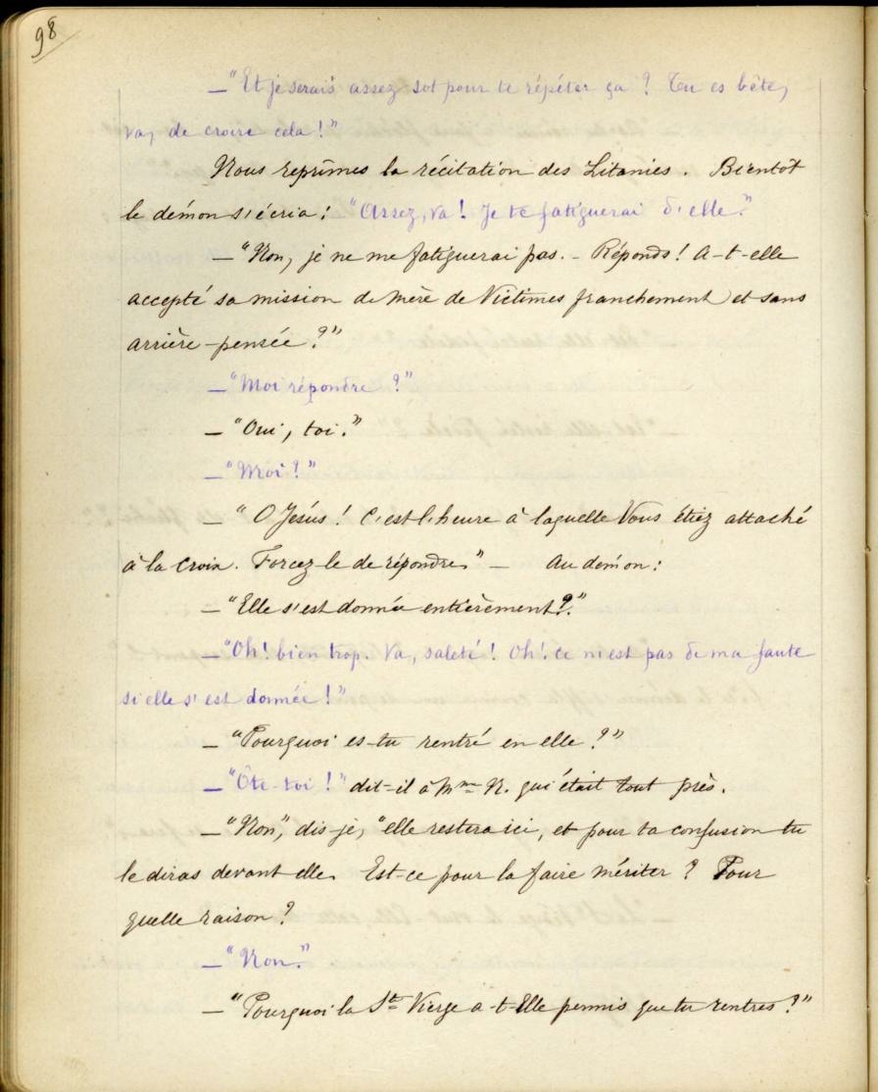 98
—"Et je serais assez sot pour te répéter ça ? Tu es bête,
va, de croire cela !"
Nous reprîmes la récitation des Litanies. Bientôt
le démon s'écria : "Assez, va ! Je te fatiguerai d'elle."
—"Non, je ne me fatiguerai pas. – Réponds ! A-t-elle
accepté sa mission de Mère de Victimes franchement et sans
arrière-pensée ?"
—"Moi répondre ?"
—"Oui, toi."
—"Moi !"
—"O Jésus ! C'est l'heure à laquelle Vous étiez attaché
à la Croix. Forcez-le de répondre." — Au démon :
—"Elle s'est donnée entièrement ?"
—"Oh ! bien trop. Va, saleté ! Oh ! ce n'est pas de ma faute
si elle s'est donnée !"
—"Pourquoi es-tu rentré en elle ?"
—"Ôte-toi !" dit-il à Mme N. qui était tout près.
—"Non", dis-je, "elle restera ici, et pour ta confusion tu
le diras devant elle. Est-ce pour la faire mériter ? Pour
quelle raison ?
—"Non."
—"Pourquoi la Ste Vierge a-t-Elle permis que tu rentres ?"